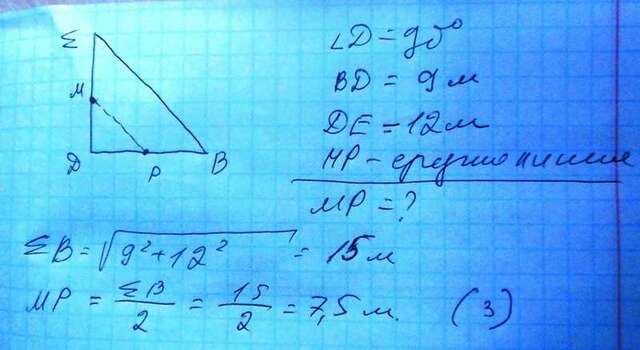 Σ
M
D
P
B
∠D = 90°
BD = 9 м
DE = 12 м
MP – средняя линия
MP = ?
ΣB = √9² + 12² = 15 м
MP = ΣB/2 = 15/2 = 7,5 м. (3)